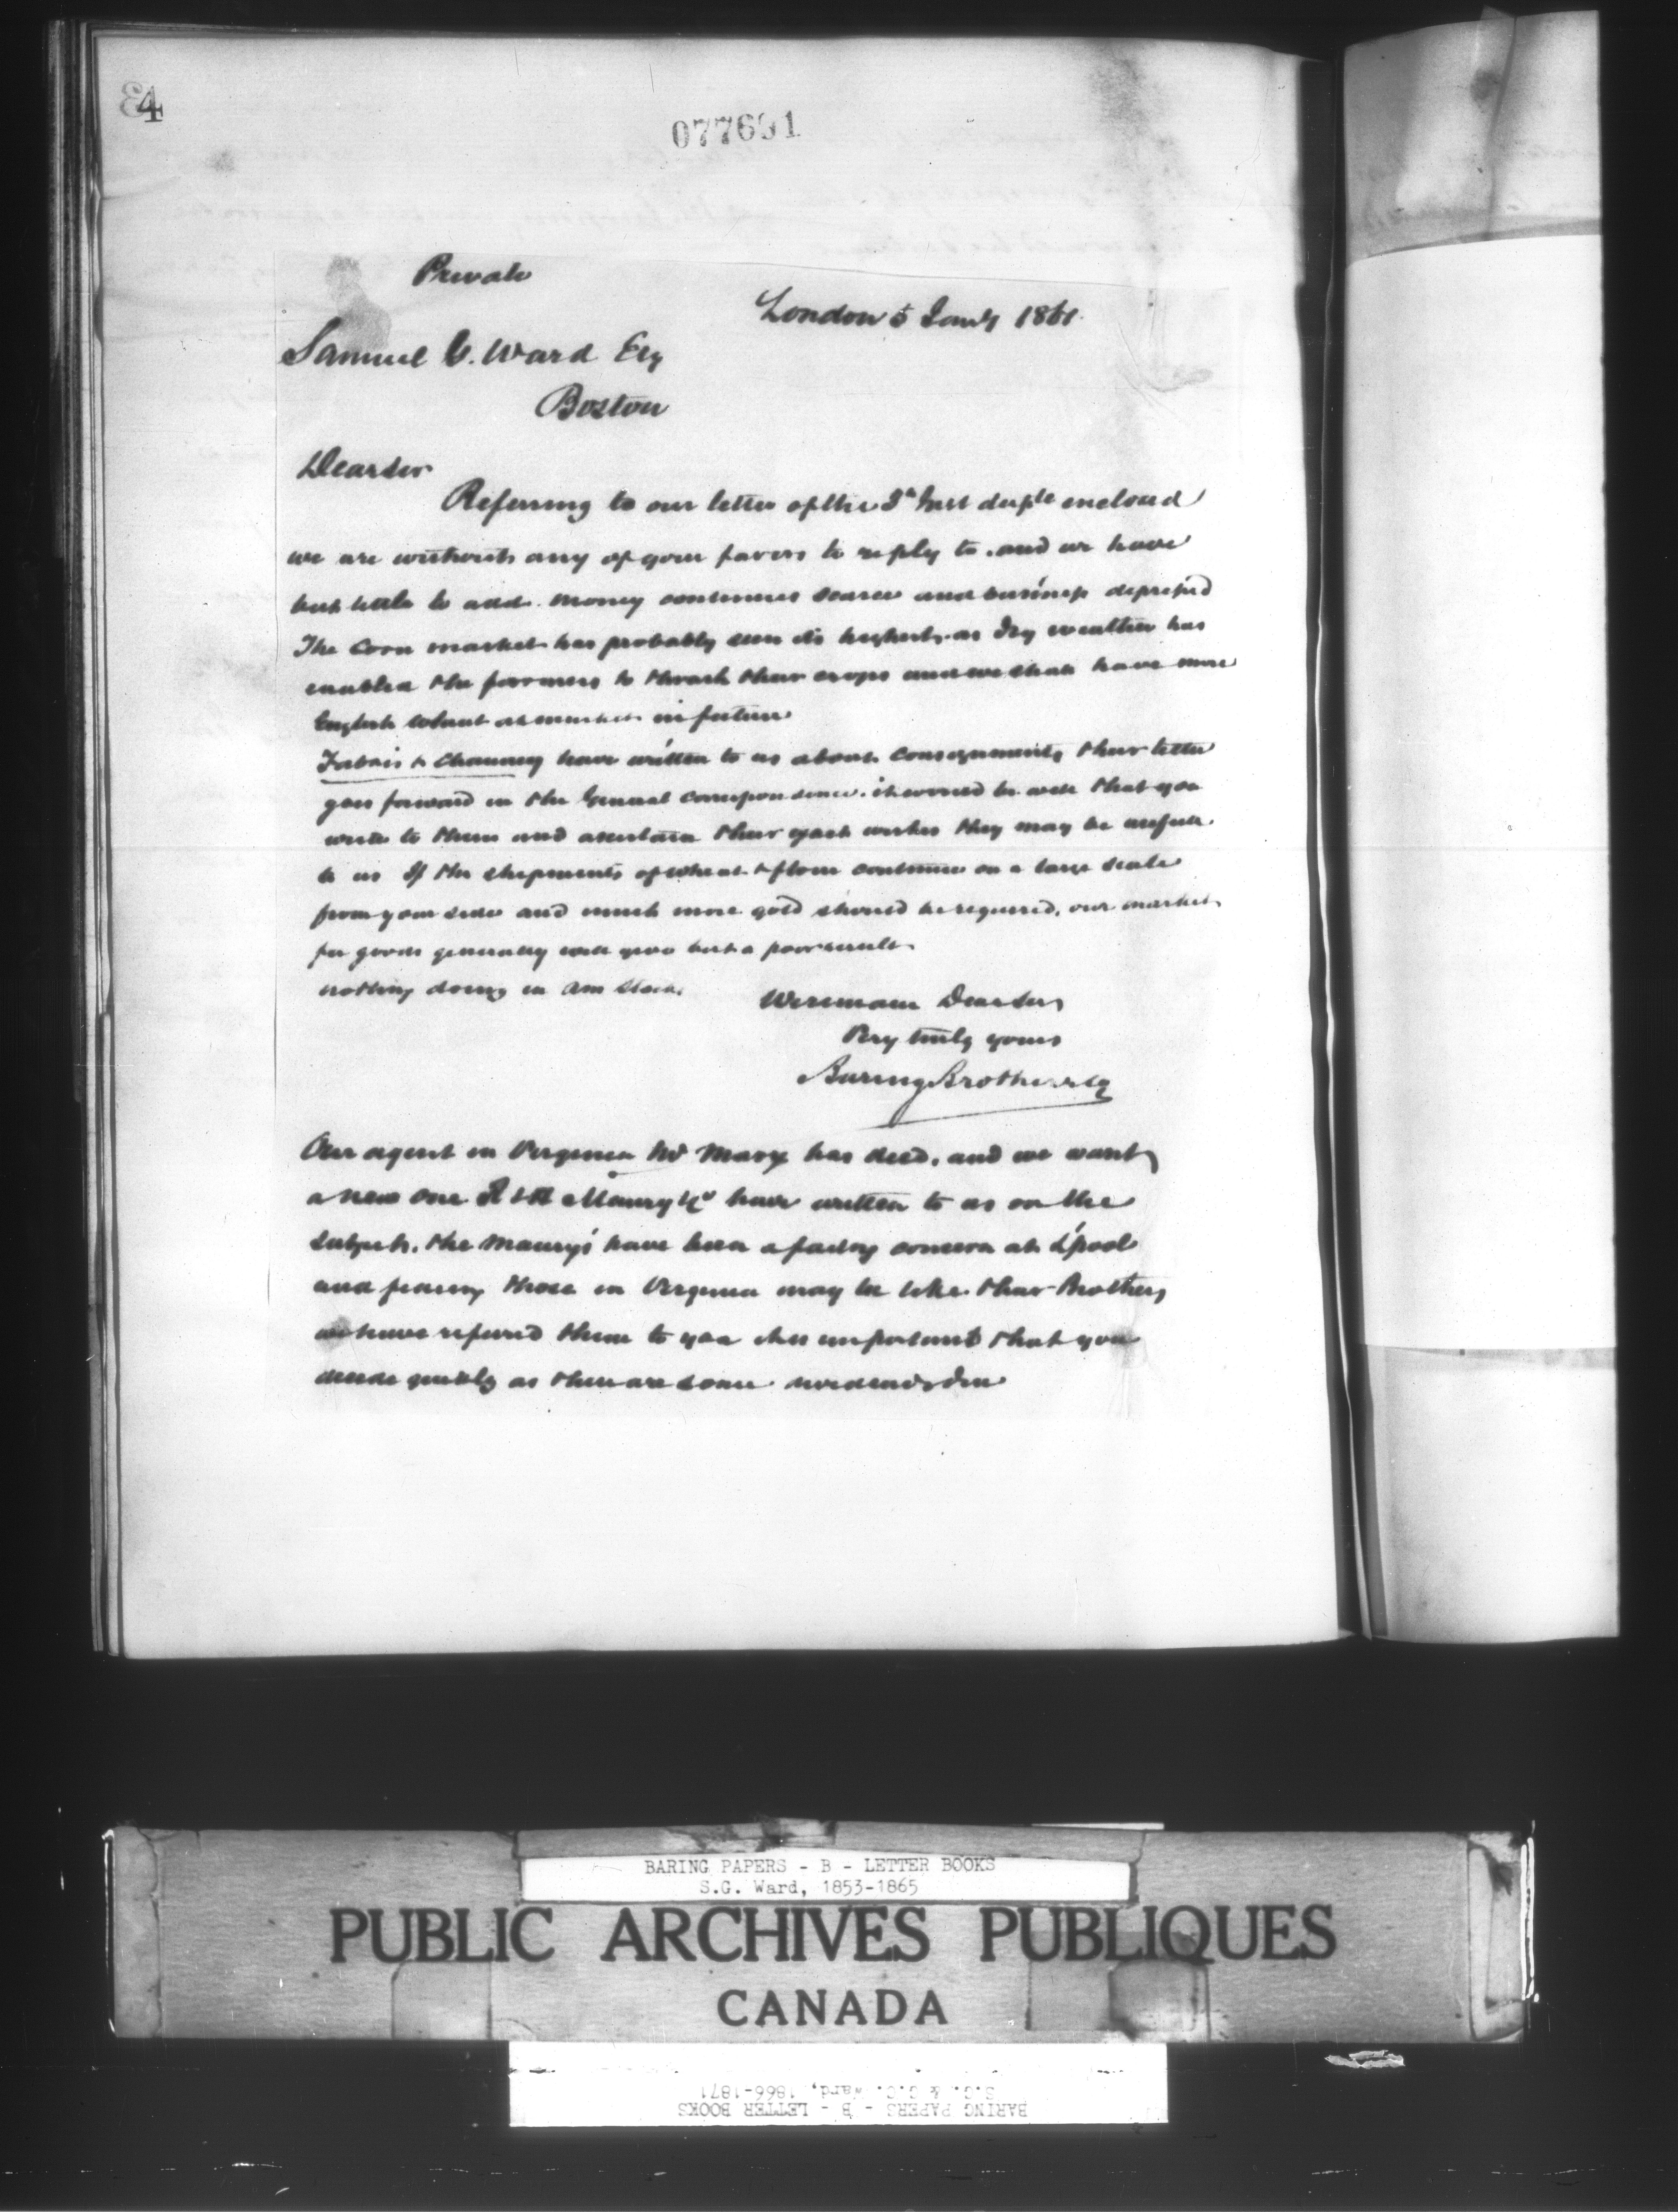 84
077691
Private
London 5 Jany 1861
Samuel G. Ward Esq
Boston
Dear Sir
Referring to our letter of the 3d Inst duple enclosed
we are without any of your favors to reply to. and we have
but little to add. Money continues scarce and business depressed
The Corn market has probably seen its highest, as dry weather has
enabled the farmers to thrash their crops and we shall have more
English wheat at market in future
& Chauncey have written to us about Consignments, their letter
goes forward in the General Correspondence. it would be well that you
write to them and ascertain their exact wishes they may be useful
to us If the shipments of wheat & flour continue on a large scale
from your side and much more gold should be required, our market
for goods generally will give but a poor result.
nothing doing in Am Stock.
We remain Dear Sir,
Very truly yours
Baring Brothers & Co
Our agent in Virginia Mr Marx has died, and we want
a new one R & H Maury & Co have written to us on the
subject. the Maury's have been a concern at L'pool
and fearing those in Virginia may be like their Brothers,
we have refered them to you it is important that you
decide quickly as there are some
BARING PAPERS - B - LETTER BOOKS
S.G. Ward, 1853-1865
PUBLIC ARCHIVES PUBLIQUES
CANADA
BARING PAPERS - B - LETTER BOOKS
S.G. & G.C. Ward, 1866-1871